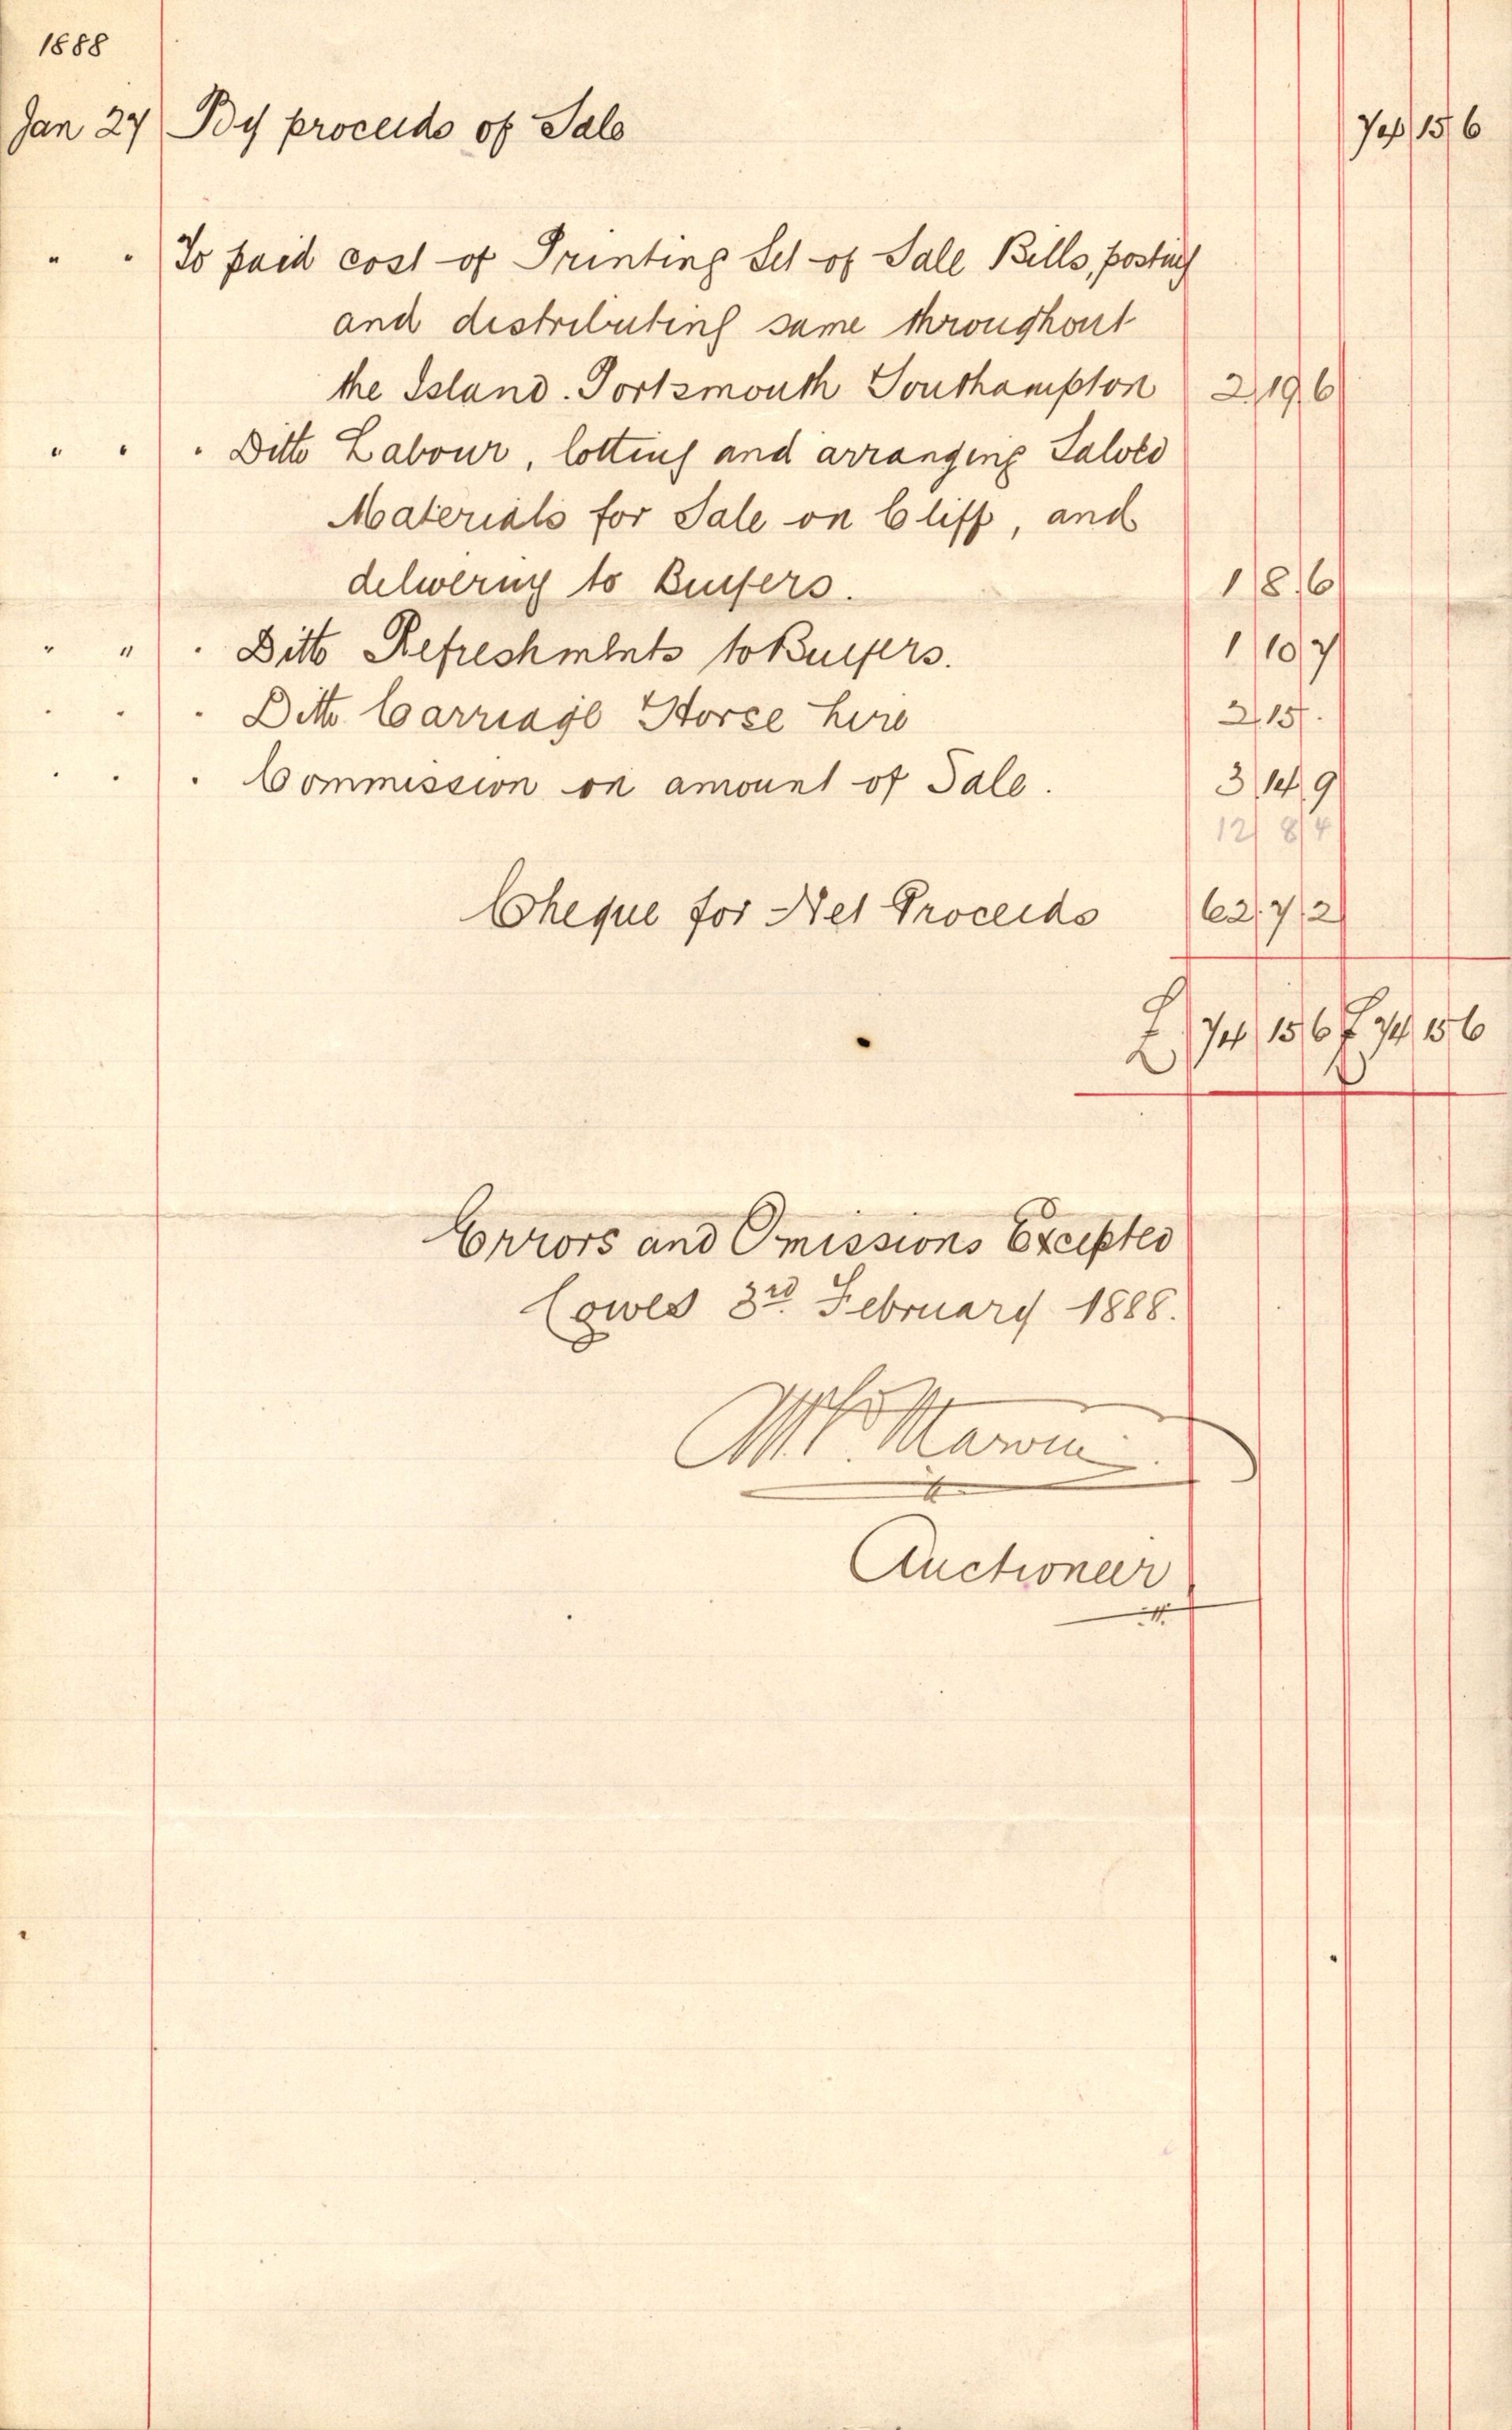 1888
Jan 27 By proceeds of Sale 74 15 6
" " To paid cost of Printing Set of Sale Bills, posting
and distributing same throughout
the Island. Portsmouth Southampton 2 19 6
" " " Ditto Labour, lotting and arranging Salved
Materials for Sale on Cliff, and
delivering to Buyers. 1 8 6
" " " Ditto Refreshments to Buyers. 1 10 7
" " " Ditto Carriage Horse hire 2 15 .
" " " Commission on amount of Sale. 3 14 9
12 8 4
Cheque for Net Proceeds 62 7 2
£ 74 15 6 £ 74 15 6
Errors and Omissions Excepted
Cowes 3rd February 1888.
Marvin
Auctioneer